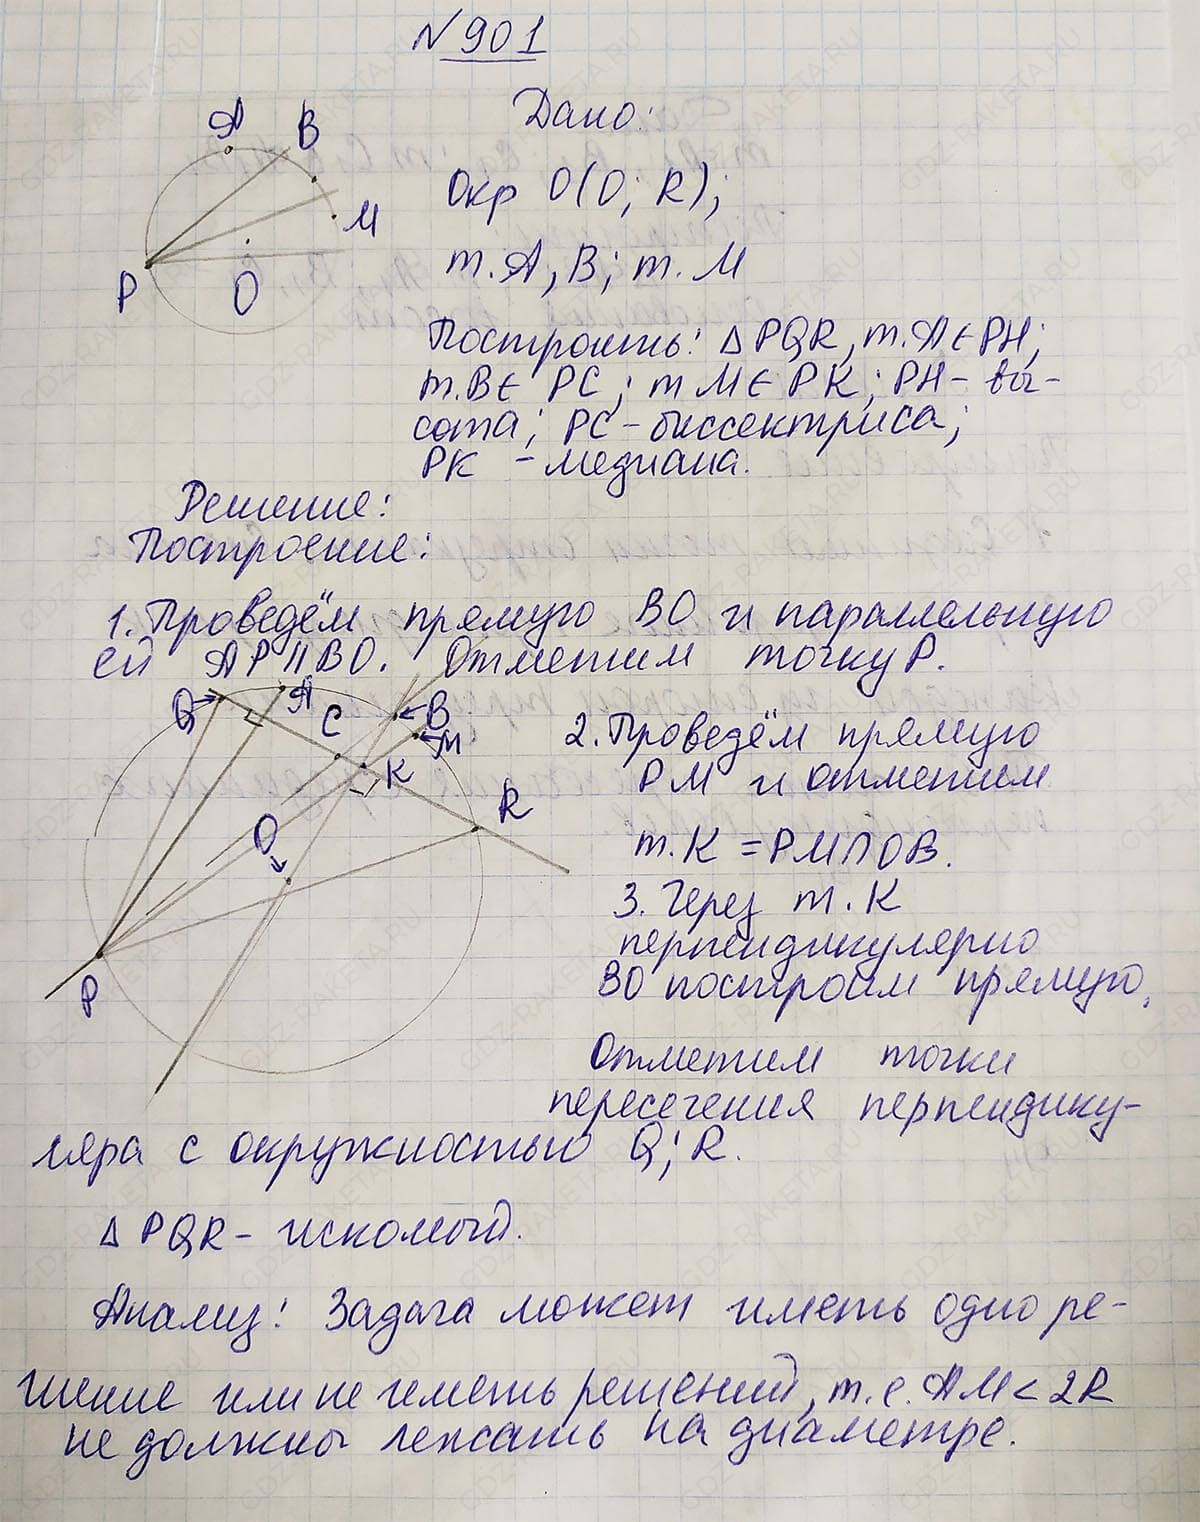 №901
A
B
M
P
O
Дано:
Окр O(O; R);
т. A, B; т. M
Построить: Δ PQR, т. A ∈ PH;
т. B ∈ PC; т M ∈ PK; PH – вы-
сота; PC – биссектриса;
PK – медиана.
Решение:
Построение:
1. Проведём прямую BO и параллельную
ей AP || BO. Отметим точку P.
Q
A
C
B
M
K
R
O
P
2. Проведём прямую
PM и отметим
т. K = PM ∩ OB.
3. Через т. K
перпендикулярно
BO построим прямую,
Отметим точки
пересечения перпендику-
ляра с окружностью Q; R.
Δ PQR – искомый.
Анализ: Задача может иметь одно ре-
шение или не иметь решений, т. е. AM < 2R
не должны лежать на диаметре.
GDZ-RAKETA.RU